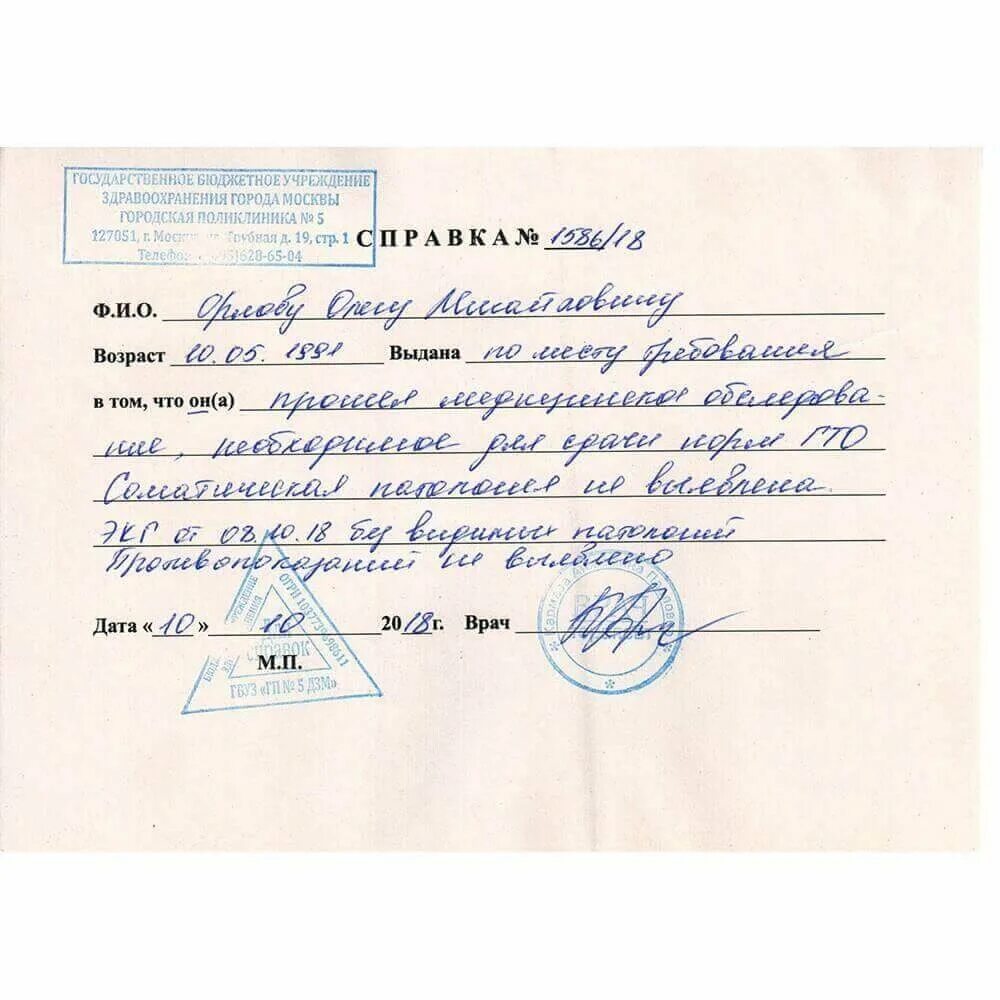 ГОСУДАРСТВЕННОЕ БЮДЖЕТНОЕ УЧРЕЖДЕНИЕ
ЗДРАВООХРАНЕНИЯ ГОРОДА МОСКВЫ
ГОРОДСКАЯ ПОЛИКЛИНИКА № 5
127051, г. Москва, ул. Трубная д. 19, стр. 1
Телефон: (495)628-65-04
СПРАВКА № 1586/18
Ф.И.О. Орлову Олегу Михайловичу
Возраст 10.05.1991 Выдана по месту требования
в том, что он(а) прошел медицинское обследова-
ние, необходимое для сдачи норм ГТО
Соматическая патология не выявлена.
ЭКГ от 08.10.18 без видимых патологий
Противопоказаний не выявлено
Дата «10» 10 2018г. Врач
М.П.
ОГРН 1037739698611
справок
ГБУЗ «ГП № 5 ДЗМ»
ВРАЧ